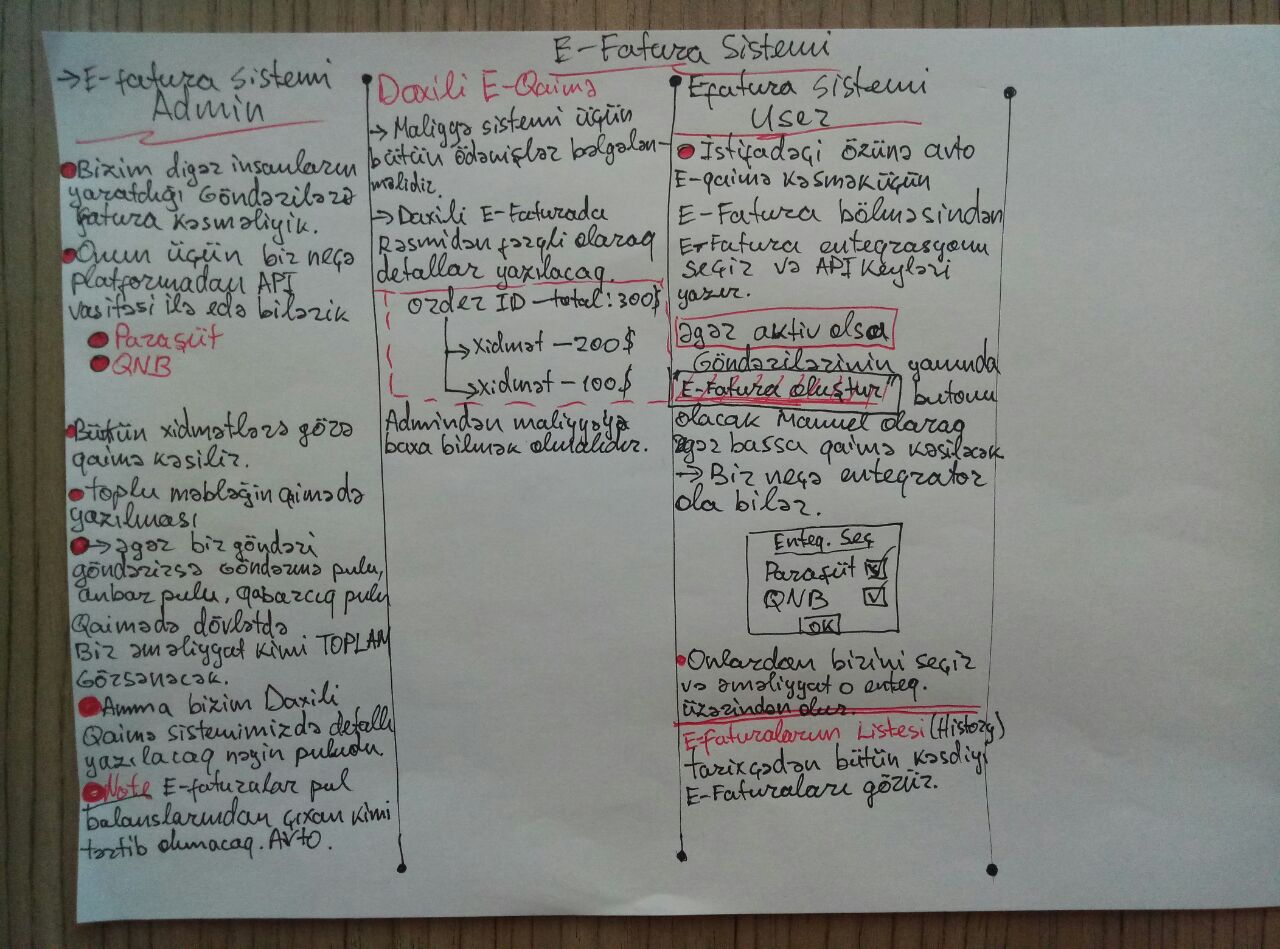 E-Fatura Sistemi
→ E-fatura Sistemi
Admin
Bizim digər insanların
yaratdığı Göndərilərə
fatura kəsməliyik.
Onun üçün bir neçə
platformadan API
vasitəsi ilə edə bilərik
Paraşüt
QNB
Bütün xidmətlərə görə
qaimə kəsilir.
toplu məbləğin qaimədə
yazılması
→ əgər biz göndəri
göndərirsə Göndərmə pulu,
anbar pulu, qabarcıq pulu
Qaimədə dövlətdə
Bir əməliyyat kimi TOPLAM
Görsənəcək.
Amma bizim Daxili
Qaimə sistemimizdə detallı
yazılacaq nəyin puludu
Note E-faturalar pul
balanslarından çıxan kimi
tərtib olunacaq. Avto.
Daxili E-Qaimə
→ Maliyyə sistemi üçün
bütün ödənişlər bəlgələn-
məlidir.
→ Daxili E-Faturada
Rəsmidən fərqli olaraq
detallar yazılacaq.
Order ID – total: 300$
→ Xidmət – 200$
→ xidmət – 100$
Admindən maliyyəyə
baxa bilmək olmalıdır.
Efatura Sistemi
User
İstifadəçi özünə avto
E-qaimə kəsmək üçün
E-Fatura bölməsindən
E-Fatura entegrasyonu
seçir və API Keyləri
yazır.
əgər aktiv olsa
Göndərilərinin yanında
"E-Fatura oluştur" butonu
olacak Manuel olaraq
əgər bassa qaimə kəsiləcək
→ Bir neçə enteqrator
ola bilər.
Enteq. Seç
Paraşüt
QNB
OK
Onlardan birini seçir
və əməliyyat o enteq.
üzərindən olur.
E-faturaların Listesi (History)
tarixçədən bütün kəsdiyi
E-Faturaları görür.